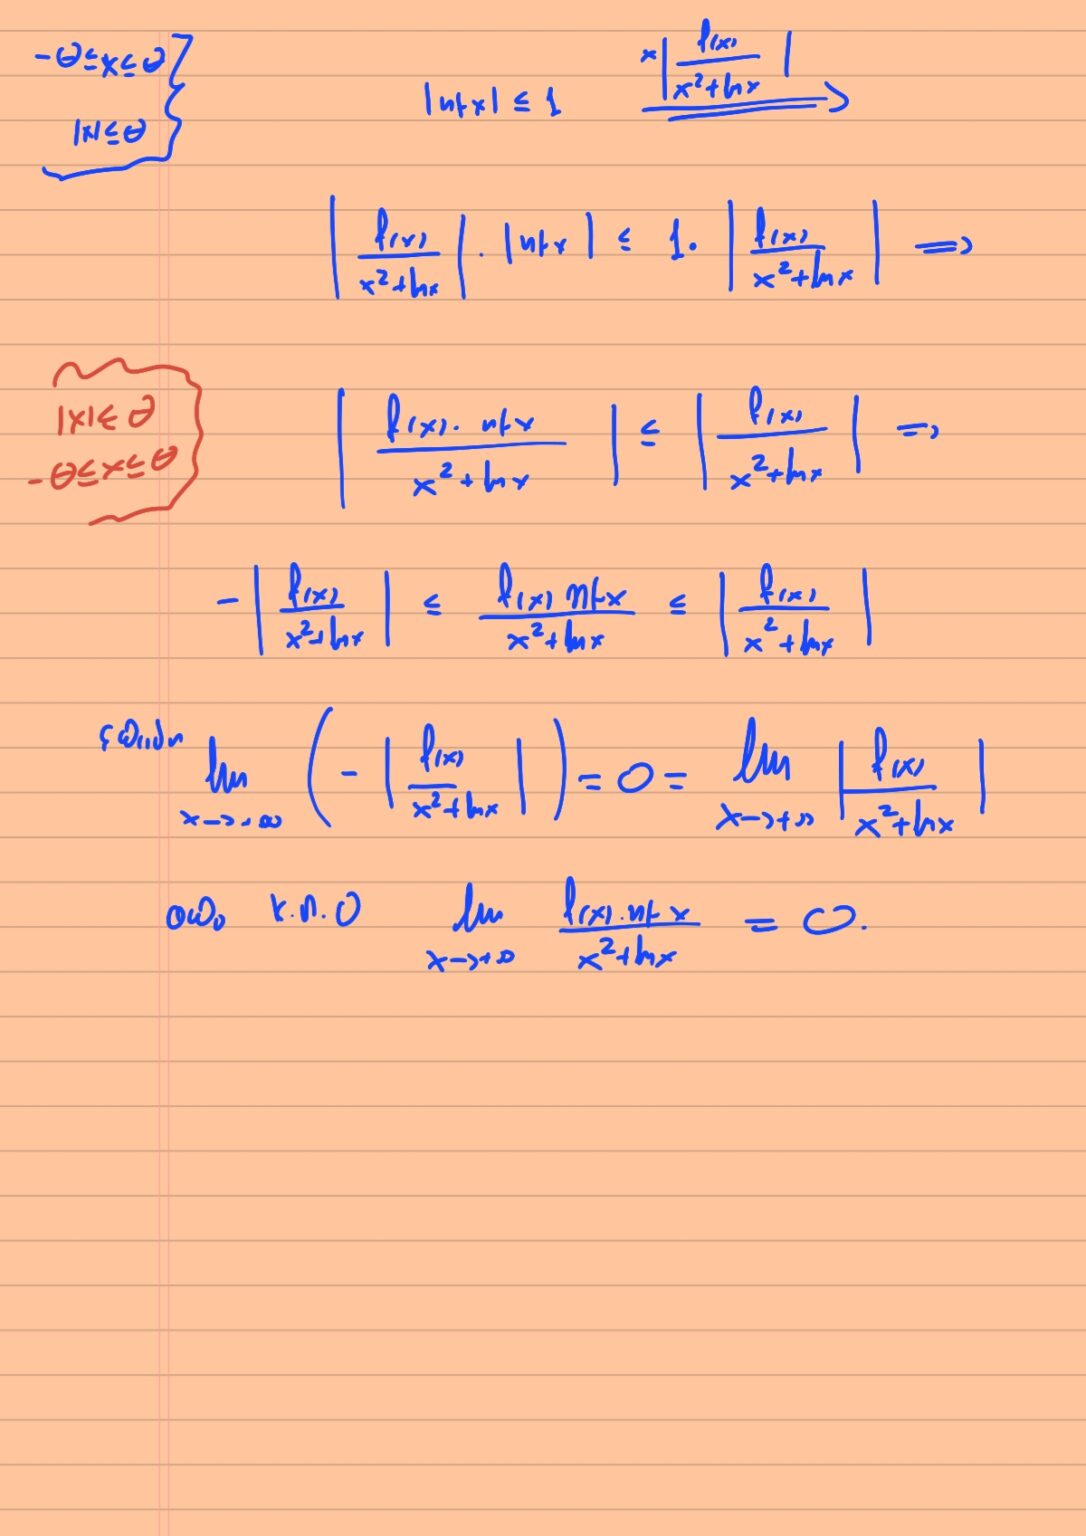 -θ≤x≤θ
|x|≤θ
|ημx| ≤ 1 ×|f(x)/(x²+lnx)| ⟹
|f(x)/(x²+lnx)| · |ημx| ≤ 1 · |f(x)/(x²+lnx)| ⟹
|x|≤θ
-θ≤x≤θ
|f(x)·ημx/(x²+lnx)| ≤ |f(x)/(x²+lnx)| ⟹
-|f(x)/(x²+lnx)| ≤ f(x)ημx/(x²+lnx) ≤ |f(x)/(x²+lnx)|
lim x→+∞ (-|f(x)/(x²+lnx)|) = 0 = lim x→+∞ |f(x)/(x²+lnx)|
κ.π. lim x→+∞ f(x)·ημx/(x²+lnx) = 0.